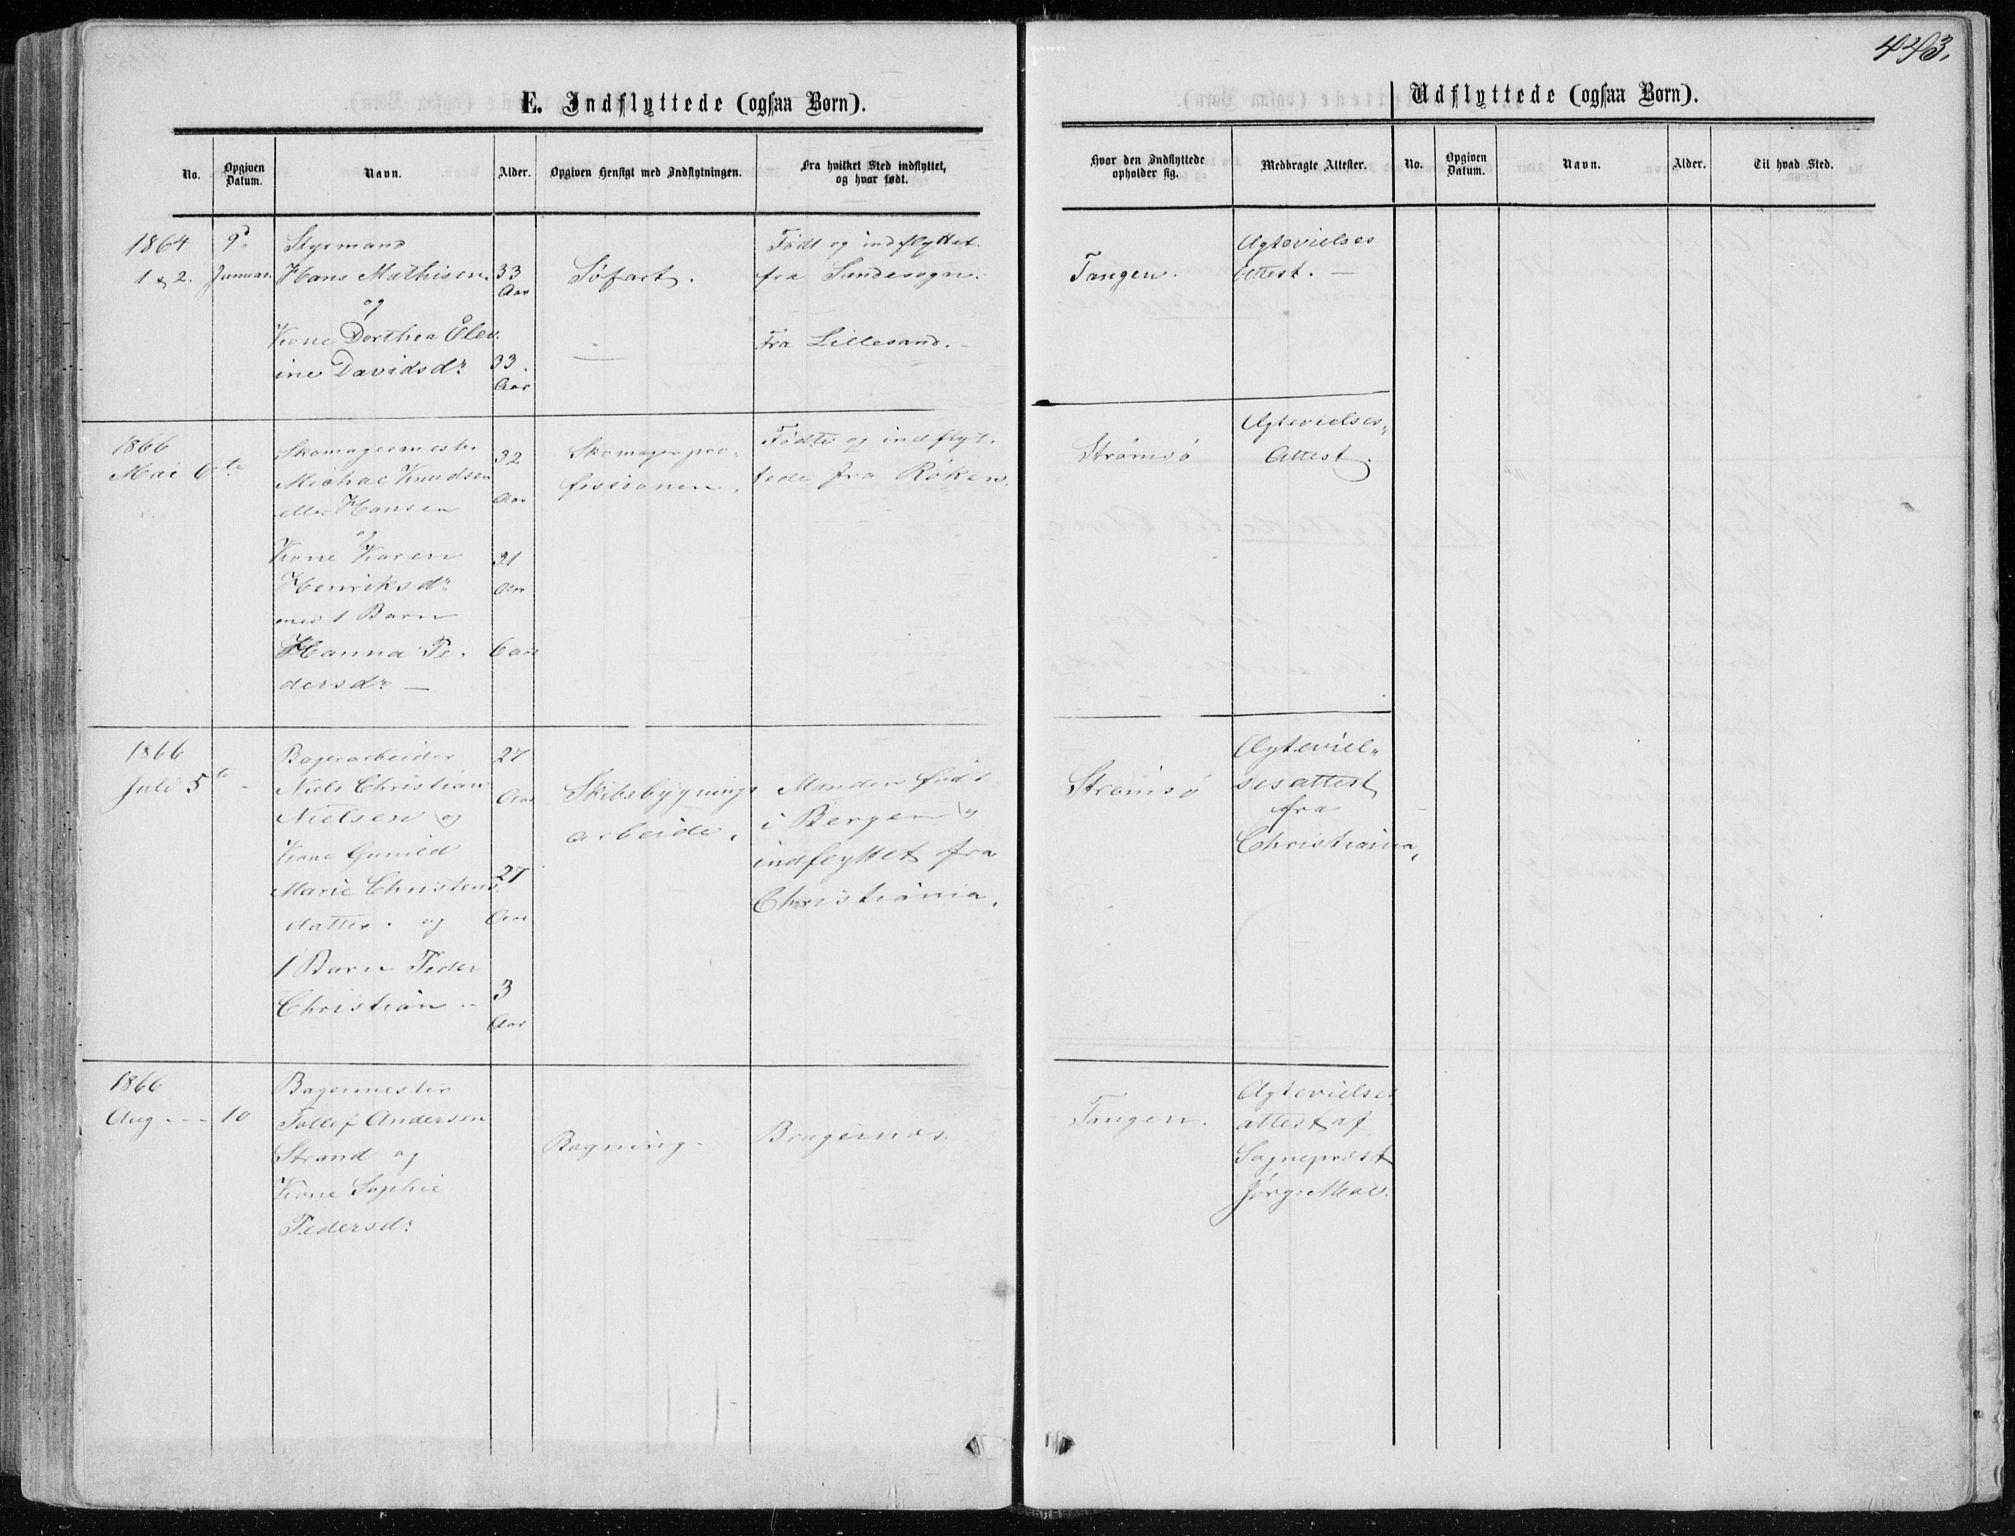 443.
E. Indflyttede (ogsaa Børn).
Udflyttede (ogsaa Børn).
No.
Opgiven Datum.
Navn.
Alder.
Opgiven Hensigt med Indflytningen.
Fra hvilket Sted indflyttet, og hvor født.
Hvor den Indflyttede opholder sig.
Medbragte Attester.
No.
Opgiven Datum.
Navn.
Alder.
Til hvad Sted.
1864
1 & 2.
9de
Januar.
Styrmand
Hans Mathisen
og
Kone Dorthea Elev
ine Davidsdr
33
Aar
33.
Aar
Søfart.
—
Født og indflyttet
fra Sandesogn.
Fra Lillesand. –
Tangen.
Ægtevielses
Attest. —
1866
Mai 6te
Skomagermester
Michae Knudsen
eller Hansen
og
Kone Karen
Henriksdr
med 1 Barn
Hanna Pe-
dersdr —
32
Aar
31
Aar
6 aar
Skomagerpro-
fessionen.
Fødte og indflyt-
tede fra Røken.
Strømsø
Ægtevielses-
Attest.
1866
Juli 5te –
Bagerarbeider
Niels Christian
Nielsen og
Kone Gunild
Marie Christens
datter. og
1 Barn Peder
Christian –
27
Aar
27
Aar
3
Aar
Skibsbygnings
arbeide.
Manden født
i Bergen og
indflyttet fra
Christiania.
Strømsø
Ægteviel-
sesattest
fra
Christiania.
1866
Aug. – – 10
Bagermester
Tollef Andersen
Strand og
Kone Sophie
Pedersdr
Bagning.
Bragernæs.
Tangen.
Ægtevielses
attest af
Sognepræst
Jørg: Moe.